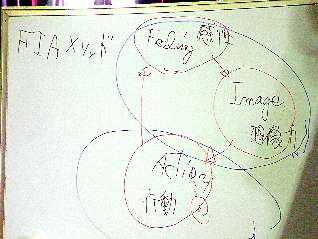 FIAメソッド
Feeling 感性
Image
想像力
Action
行動